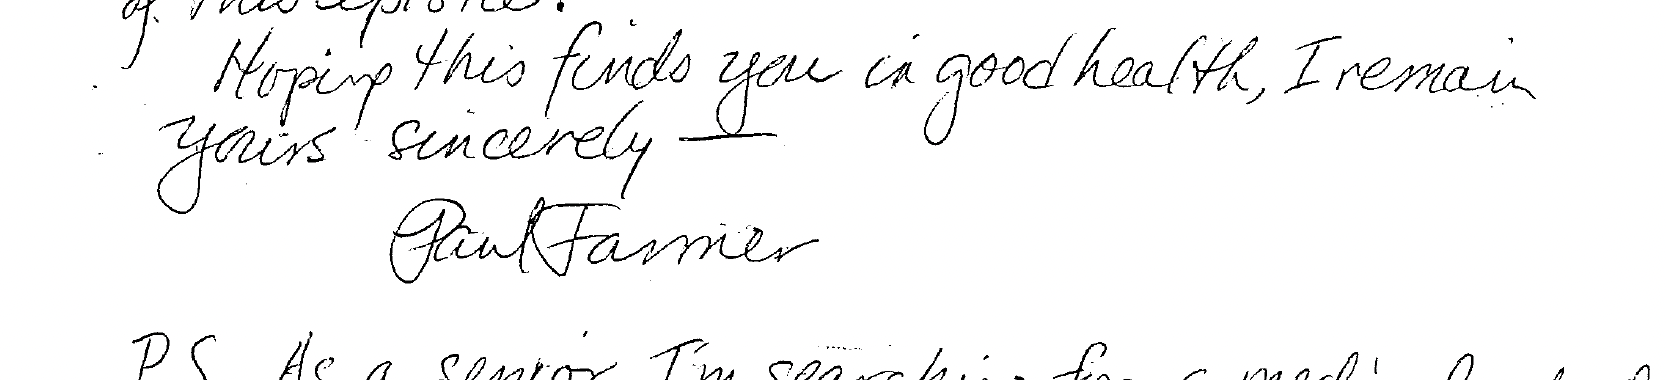 of this epistle.
Hoping this finds you in good health, I remain
yours sincerely —
Paul Farmer
P.S. As a senior I'm searching for a medical